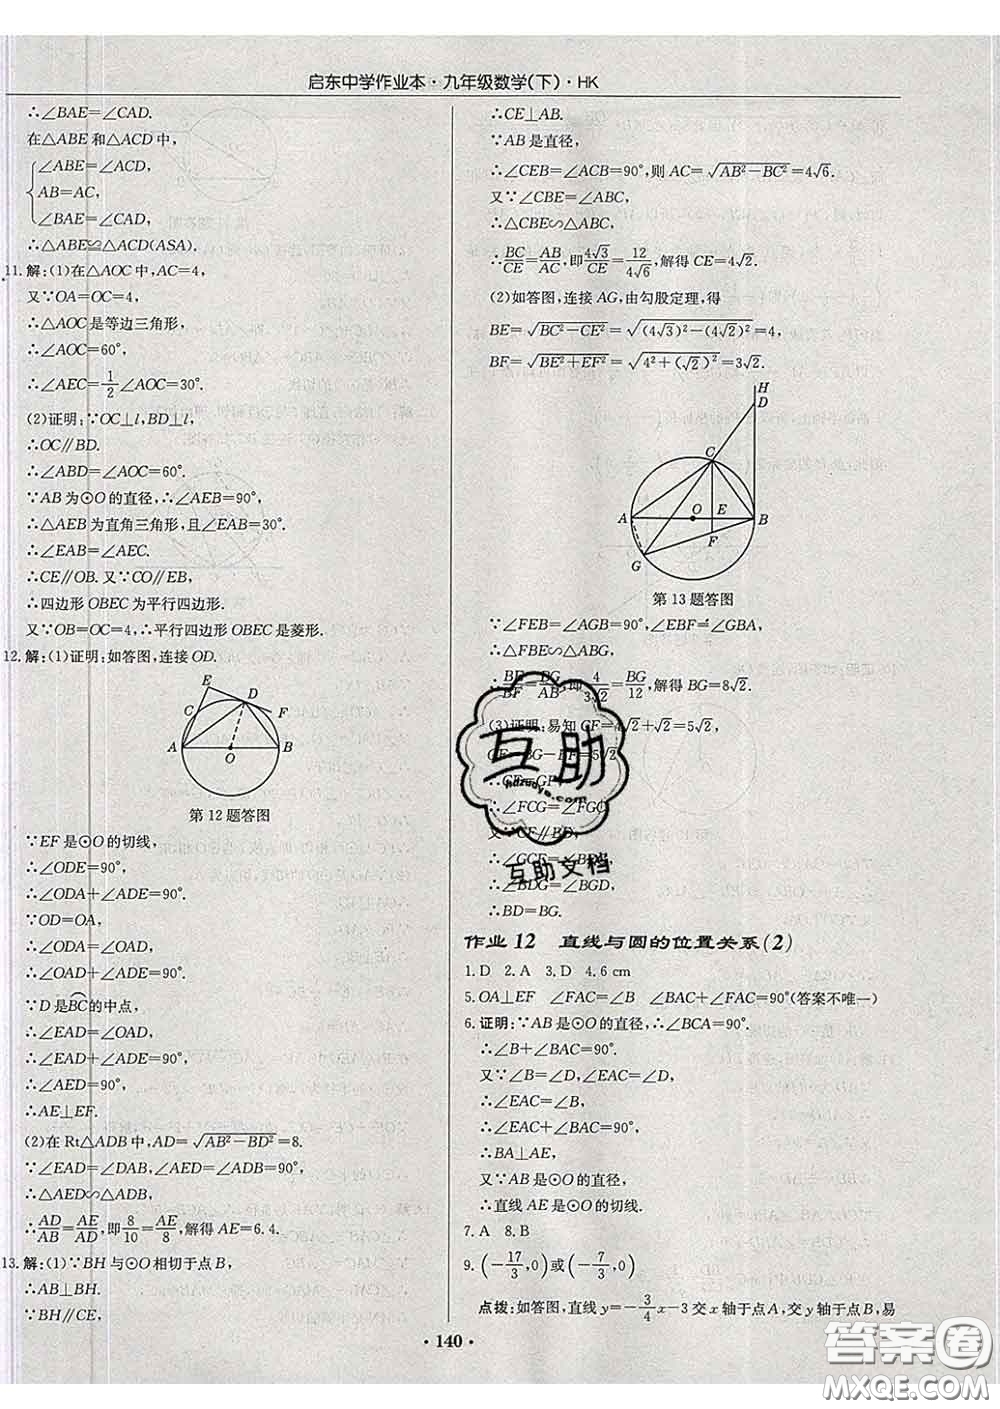 启东中学作业本·九年级数学(下)·HK
∴∠BAE=∠CAD.
在△ABE和△ACD中,
∠ABE=∠ACD,
AB=AC,
∠BAE=∠CAD,
∴△ABE≌△ACD(ASA).
11.解:(1)在△AOC中,AC=4,
又∵OA=OC=4,
∴△AOC是等边三角形,
∴∠AOC=60°,
∴∠AEC=1/2∠AOC=30°.
(2)证明:∵OC⊥l,BD⊥l.
∴OC∥BD.
∴∠ABD=∠AOC=60°.
∵AB为⊙O的直径,∴∠AEB=90°,
∴△AEB为直角三角形,且∠EAB=30°.
∴∠EAB=∠AEC.
∴CE∥OB.又∵CO∥EB,
∴四边形OBEC为平行四边形.
又∵OB=OC=4,∴平行四边形OBEC是菱形.
12.解:(1)证明:如答图,连接OD.
E
D
C
F
A
O
B
第12题答图
∵EF是⊙O的切线,
∴∠ODE=90°,
∴∠ODA+∠ADE=90°.
∵OD=OA,
∴∠OAD=∠ODA,
∴∠OAD+∠ADE=90°.
∵D是BC的中点,
∴∠EAD=∠OAD,
∴∠EAD+∠ADE=90°,
∴∠AED=90°,
∴AE⊥EF.
(2)在Rt△ADB中,AD=√(AB²-BD²)=8.
∵∠EAD=∠DAB,∠AED=∠ADB=90°,
∴△AED∽△ADB,
∴AD/AB=AE/AD,即8/10=AE/8,解得AE=6.4.
13.解:(1)∵BH与⊙O相切于点B,
∴AB⊥BH.
∵BH∥CE,
∴CE⊥AB.
∵AB是直径,
∴∠CEB=∠ACB=90°,则AC=√(AB²-BC²)=4√6.
又∵∠CBE=∠ABC,
∴△CBE∽△ABC,
∴BC/CE=AB/AC,即4√3/CE=12/4√6,解得CE=4√2.
(2)如答图,连接AG,由勾股定理,得
BE=√(BC²-CE²)=√((4√3)²-(4√2)²)=4,
BF=√(BE²+EF²)=√(4²+(√2)²)=3√2.
H
D
C
A
O
E
B
F
G
第13题答图
∵∠FEB=∠AGB=90°,∠EBF=∠GBA,
∴△FBE∽△ABG,
∴BE/BF=BG/AB,即4/3√2=BG/12,解得BG=8√2.
(3)证明:易知CF=4√2+√2=5√2,
GF=BG-BF=5√2
∴CF=GF,
∴∠FCG=∠FGC
又∵CF∥BD,
∴∠GCF=∠BD
∴∠BDG=∠BGD,
∴BD=BG.
互助
hdzuoye.com
互助文档
作业12 直线与圆的位置关系(2)
1.D 2.A 3.D 4.6 cm
5.OA⊥EF ∠FAC=∠B ∠BAC+∠FAC=90°(答案不唯一)
6.证明:∵AB是⊙O的直径,∴∠BCA=90°.
∴∠B+∠BAC=90°.
又∵∠B=∠D,∠EAC=∠D,
∴∠EAC=∠B,
∴∠EAC+∠BAC=90°,
∴BA⊥AE,
又∵AB是⊙O的直径,
∴直线AE是⊙O的切线.
7.A 8.B
9.(-17/3,0)或(-7/3,0)
点拨:如答图,直线y=-3/4x-3交x轴于点A,交y轴于点B,易
·140·
答案圈
MXQE.COM